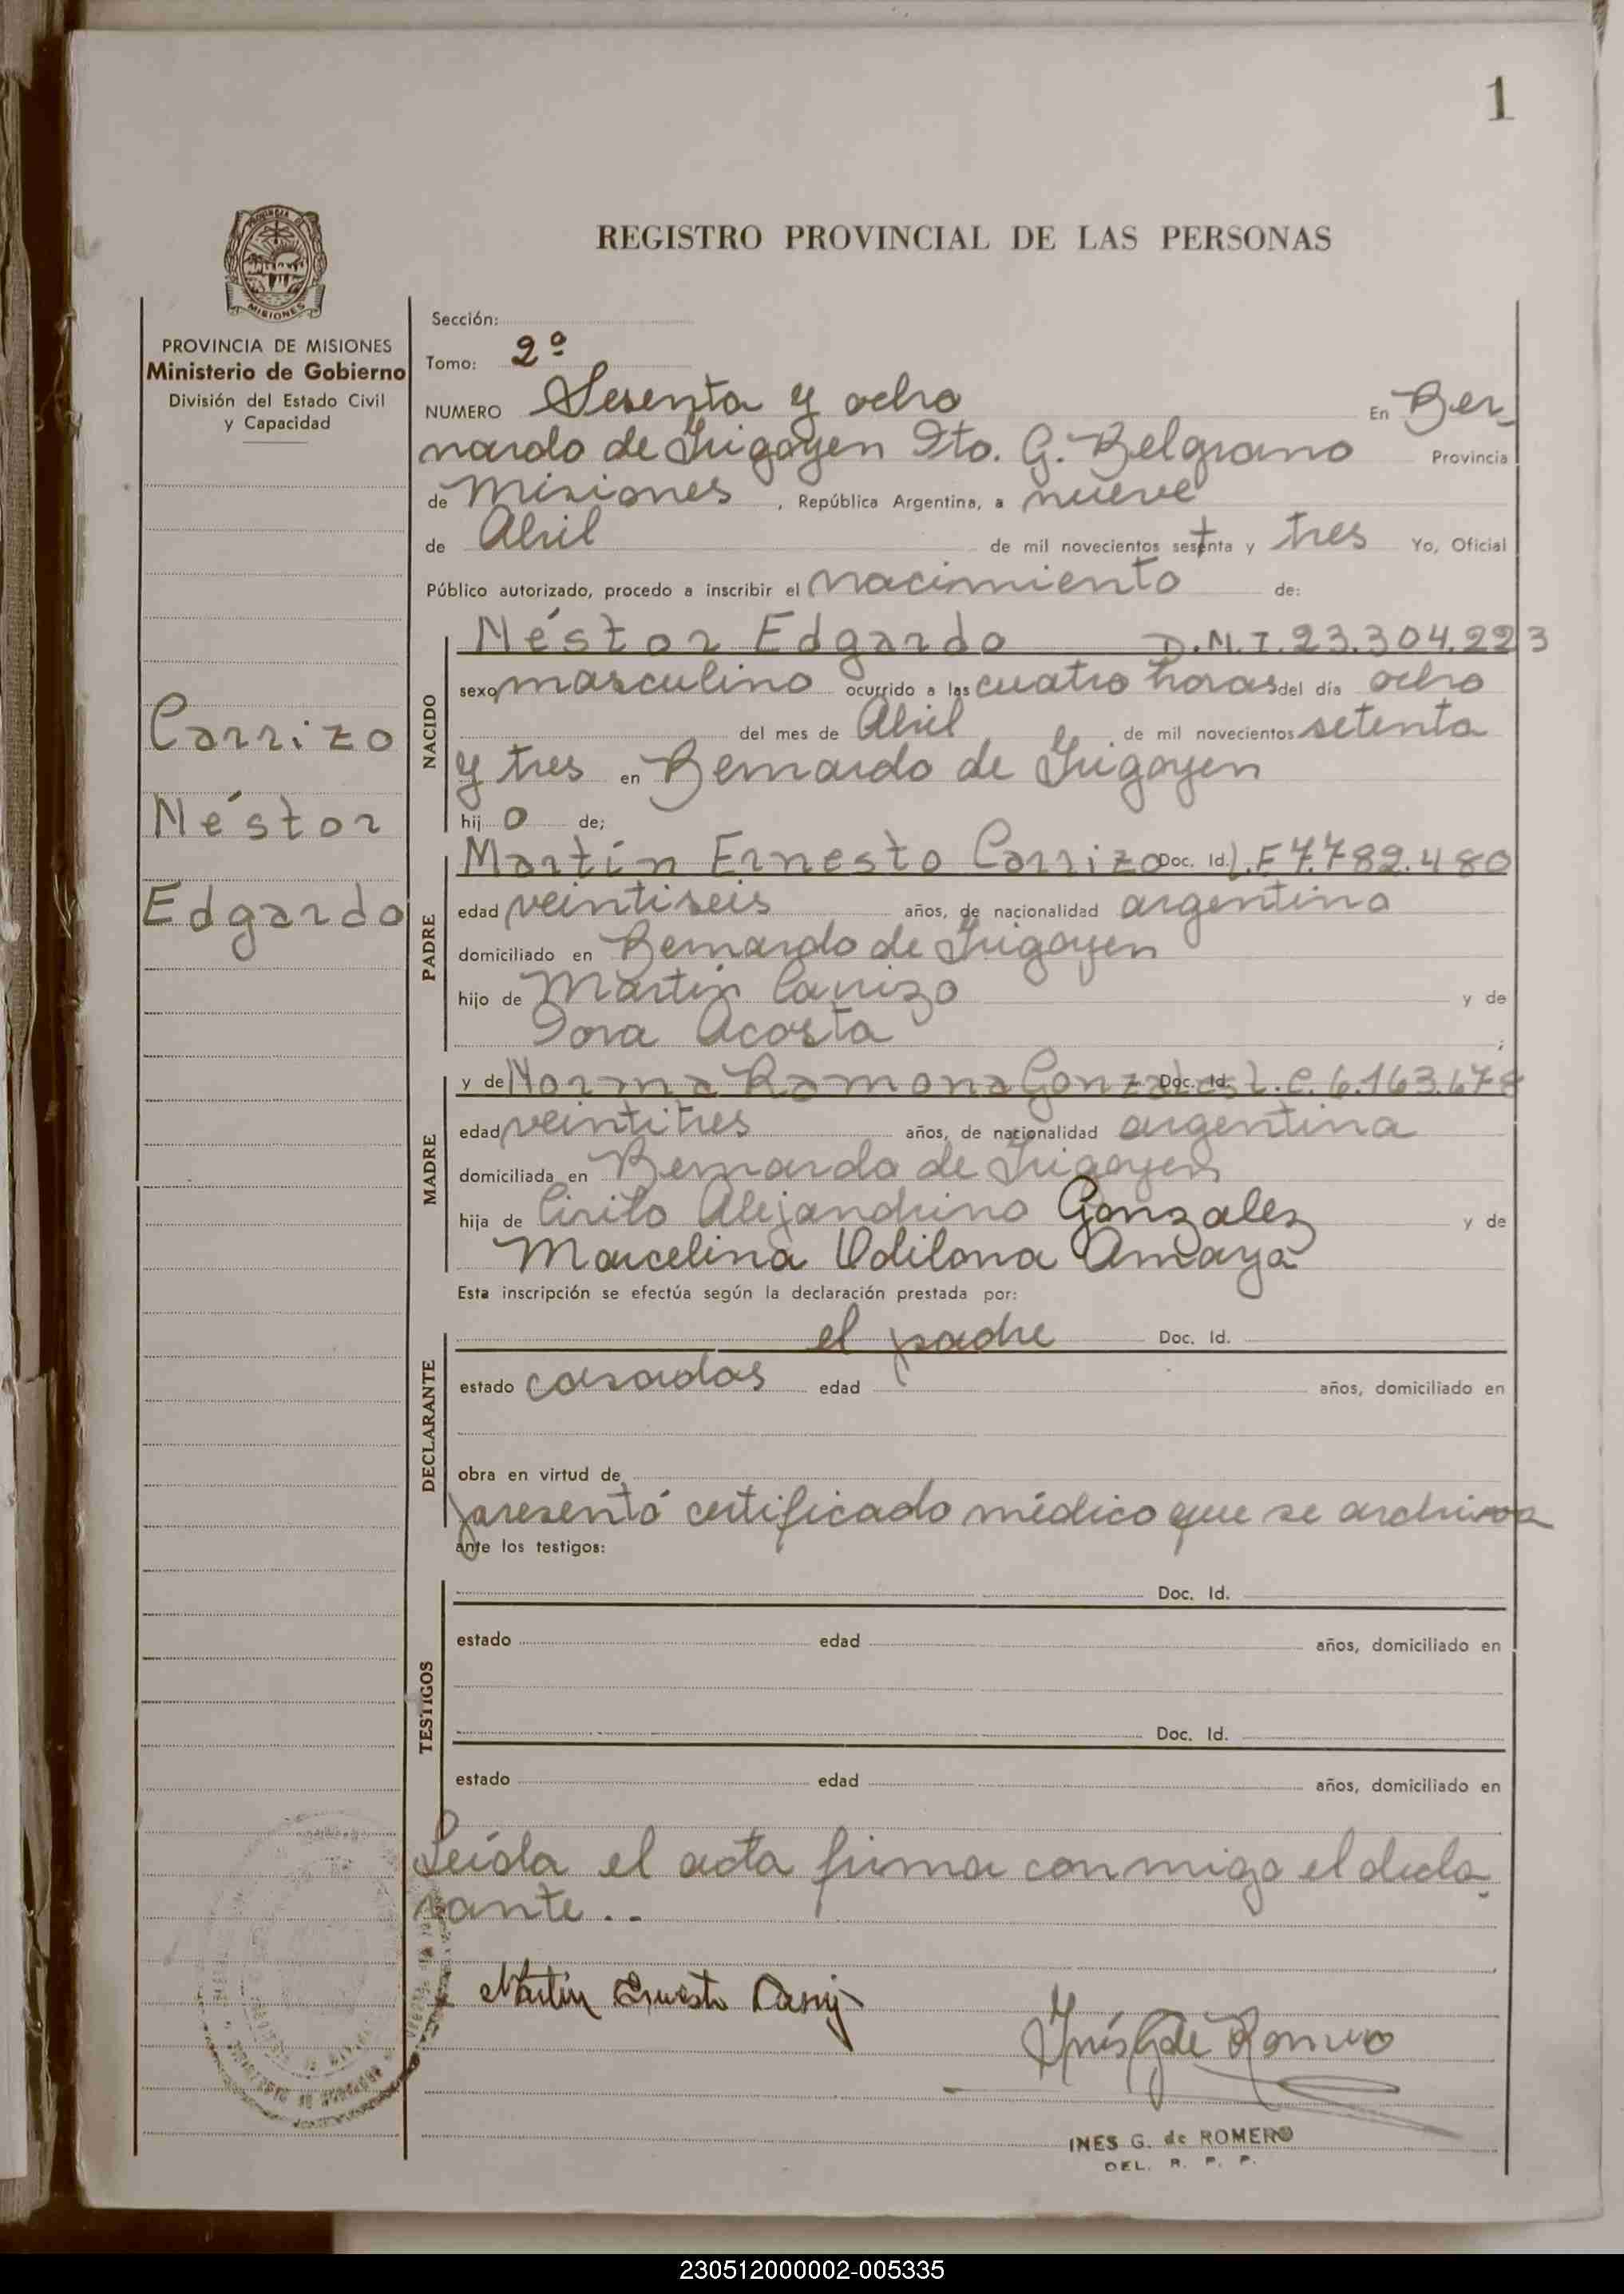 1
REGISTRO PROVINCIAL DE LAS PERSONAS
MISIONES
PROVINCIA DE MISIONES
Ministerio de Gobierno
División del Estado Civil
y Capacidad
Carrizo
Néstor
Edgardo
Sección:
Tomo: 2º
NUMERO Sesenta y ocho En Ber-
nardo de Irigoyen Dto. G. Belgrano Provincia
de Misiones, República Argentina, a nueve
de Abril de mil novecientos setenta y tres Yo, Oficial
Público autorizado, procedo a inscribir el nacimiento de:
NACIDO
Néstor Edgardo D.N.I. 23.304.223
sexo masculino ocurrido a las cuatro horas del día ocho
del mes de Abril de mil novecientos setenta
y tres en Bernardo de Irigoyen
hijo de;
PADRE
Martín Ernesto Carrizo Doc. Id. L.E 7.789.480
edad veintiseis años, de nacionalidad argentina
domiciliado en Bernardo de Irigoyen
hijo de Martín Carrizo y de
Dora Acosta ;
MADRE
y de Norma Ramona Gonzales Doc. Id. L.C. 6.163.678
edad veintitres años, de nacionalidad argentina
domiciliada en Bernardo de Irigoyen
hija de Cirilo Alejandrino Gonzalez y de
Marcelina Odilona Amaya
Esta inscripción se efectúa según la declaración prestada por:
DECLARANTE
el padre Doc. Id.
estado casados edad años, domiciliado en
obra en virtud de
presentó certificado médico que se archiva
ante los testigos:
TESTIGOS
Doc. Id.
estado edad años, domiciliado en
Doc. Id.
estado edad años, domiciliado en
Leída el acta firma conmigo el decla-
rante..
Martin Ernesto Carrizo
Inés G de Romero
INES G. de ROMERO
DEL. R. P. P.
230512000002-005335